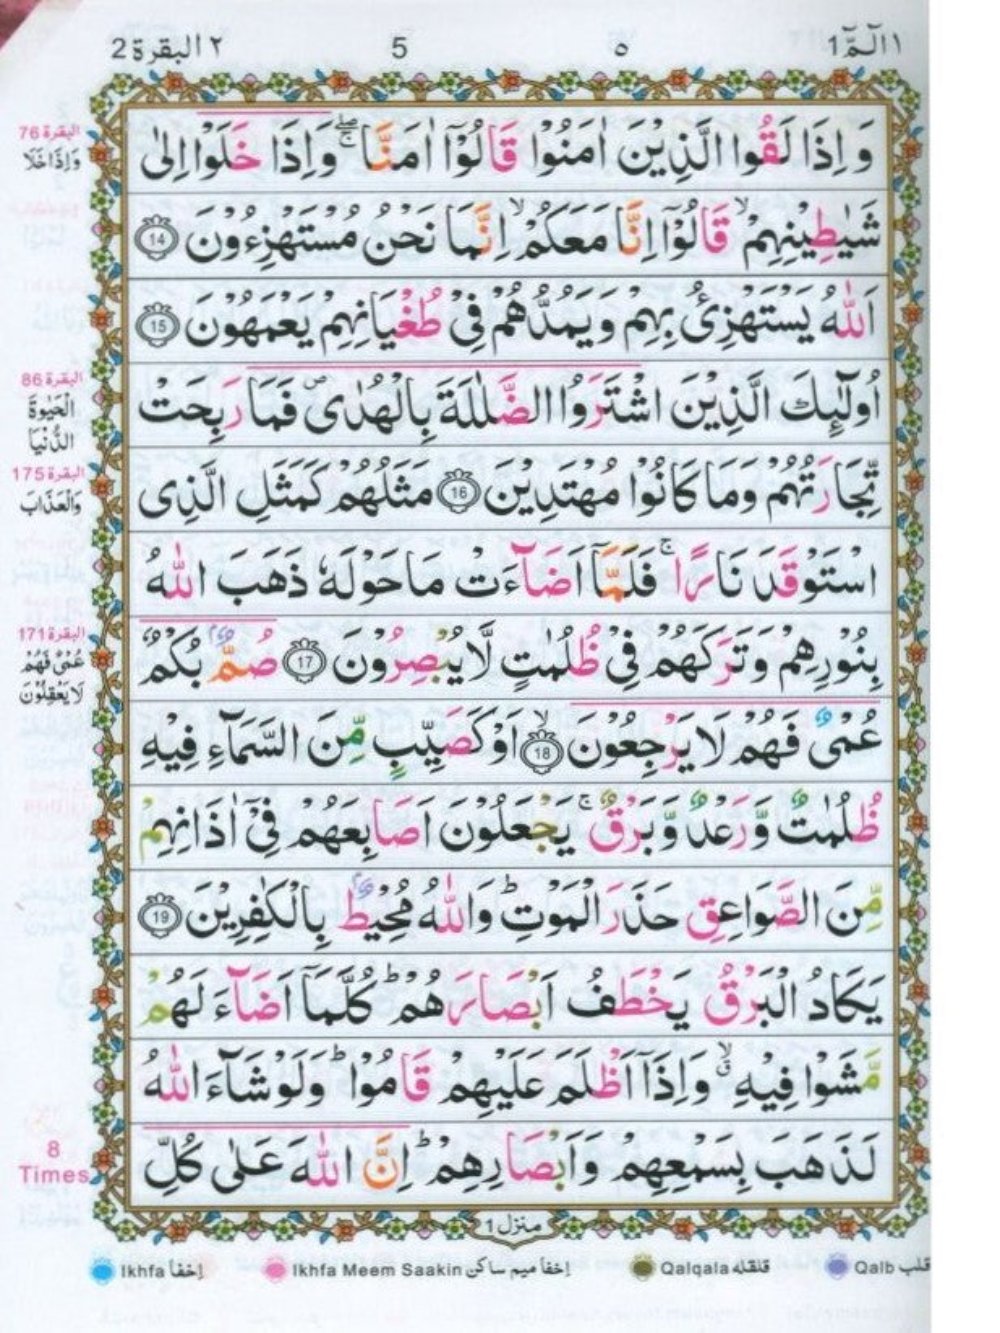 ١ الٓمّٓ 1
٥
5
٢ البقرة 2
وَ اِذَا لَقُوا الَّذِیْنَ اٰمَنُوْا قَالُوْۤا اٰمَنَّا ۖۚ وَ اِذَا خَلَوْا اِلٰى
شَیٰطِیْنِهِمْ ۙ قَالُوْۤا اِنَّا مَعَكُمْ ۙ اِنَّمَا نَحْنُ مُسْتَهْزِءُوْنَ 14
اَللّٰهُ یَسْتَهْزِئُ بِهِمْ وَیَمُدُّهُمْ فِیْ طُغْیَانِهِمْ یَعْمَهُوْنَ 15
اُولٰٓئِكَ الَّذِیْنَ اشْتَرَوُا الضَّلٰلَةَ بِالْهُدٰى ۪ فَمَا رَبِحَتْ
تِّجَارَتُهُمْ وَمَا كَانُوْا مُهْتَدِیْنَ 16 مَثَلُهُمْ كَمَثَلِ الَّذِی
اسْتَوْقَدَ نَارًا ۚ فَلَمَّاۤ اَضَآءَتْ مَاحَوْلَهٗ ذَهَبَ اللّٰهُ
بِنُوْرِهِمْ وَتَرَكَهُمْ فِیْ ظُلُمٰتٍ لَّا یُبْصِرُوْنَ 17 صُمٌّۢ بُكْمٌ
عُمْیٌ فَهُمْ لَا یَرْجِعُوْنَ ۙ 18 اَوْ كَصَیِّبٍ مِّنَ السَّمَآءِ فِیْهِ
ظُلُمٰتٌ وَّرَعْدٌ وَّبَرْقٌ ۚ یَجْعَلُوْنَ اَصَابِعَهُمْ فِیْۤ اٰذَانِهِمْ
مِّنَ الصَّوَاعِقِ حَذَرَ الْمَوْتِ ؕ وَاللّٰهُ مُحِیْطٌۢ بِالْكٰفِرِیْنَ 19
یَكَادُ الْبَرْقُ یَخْطَفُ اَبْصَارَهُمْ ؕ كُلَّمَاۤ اَضَآءَ لَهُمْ
مَّشَوْا فِیْهِ ۙۗ وَاِذَاۤ اَظْلَمَ عَلَیْهِمْ قَامُوْا ؕ وَلَوْ شَآءَ اللّٰهُ
لَذَهَبَ بِسَمْعِهِمْ وَاَبْصَارِهِمْ ؕ اِنَّ اللّٰهَ عَلٰى كُلِّ
البقرة 76
وَاِذَا خَلَا
البقرة 86
الْحَیٰوةَ
الدُّنْیَا
البقرة 175
وَالْعَذَابَ
البقرة 171
عُمْیٌ فَهُمْ
لَا یَعْقِلُوْنَ
8
Times
منزل 1
Ikhfa إخفا
Ikhfa Meem Saakin إخفا ميم ساكن
Qalqala قلقله
Qalb قلب